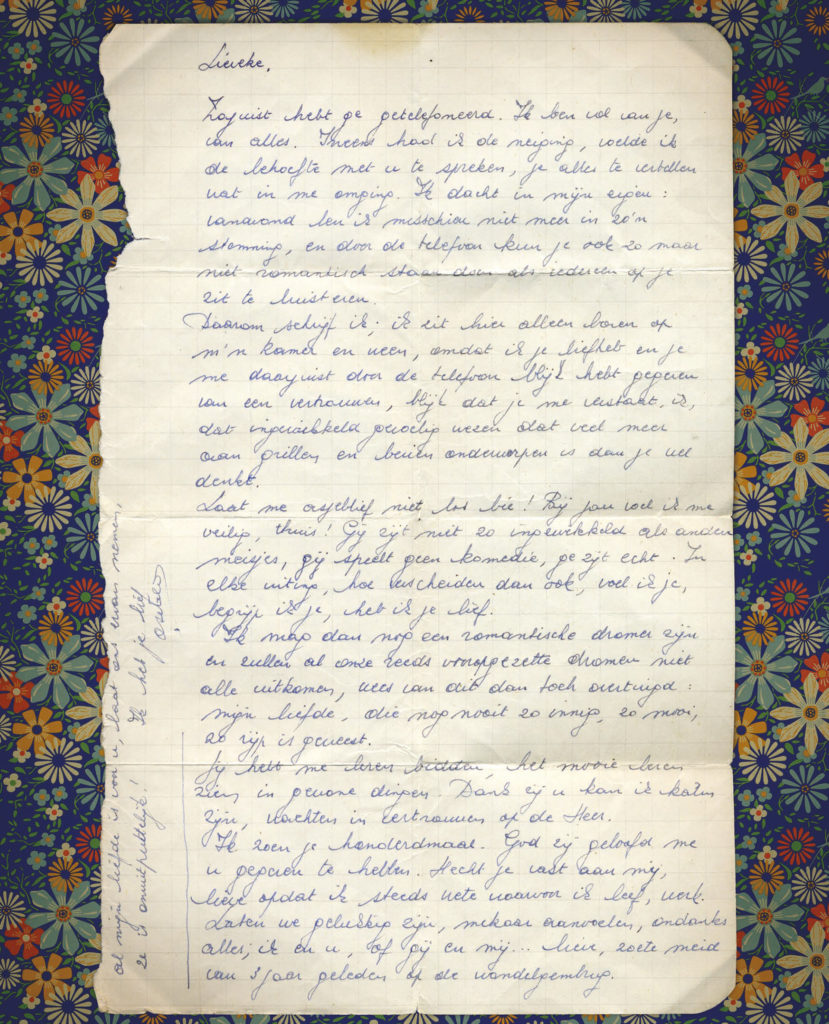 Lieveke,
Zojuist hebt ge getelefoneerd. Ik ben vol van je,
van alles. Ineens had ik de neiging, voelde ik
de behoefte met u te spreken, je alles te vertellen
wat in me omging. Ik dacht in mijn eigen:
vanavond ben ik misschien niet meer in zo'n
stemming, en door de telefoon kun je ook zo maar
niet romantisch staan doen als iedereen op je
zit te luisteren.
Daarom schrijf ik; ik zit hier alleen boven op
m'n kamer en ween, omdat ik je liefheb en je
me daarjuist door de telefoon blijk hebt gegeven
van een vertrouwen, blijk dat je me verstaat, ik,
dat ingewikkeld gevoelig wezen dat veel meer
aan grillen en buien onderworpen is dan je wel
denkt.
Laat me asjeblief niet los hé! Bij jou voel ik me
veilig, thuis! Gij zijt niet zo ingewikkeld als andere
meisjes, gij speelt geen komedie, ge zijt echt. In
elke uiting, hoe verscheiden dan ook, voel ik je,
begrijp ik je, heb ik je lief.
Ik mag dan nog een romantische dromer zijn
en zullen al onze reeds vooropgezette dromen niet
alle uitkomen, wees van dit dan toch overtuigd:
mijn liefde, die nog nooit zo innig, zo mooi,
zo rijp is geweest.
Jij hebt me leren bidden, het mooie leren
zien in gewone dingen. Dank zij u kan ik kalm
zijn, wachten in vertrouwen op de Heer.
Ik zoen je honderdmaal. God zij geloofd me
u gegeven te hebben. Hecht je vast aan mij,
liefje opdat ik steeds wete waarvoor ik leef, werk.
Laten we gelukkig zijn, mekaar aanvoelen, ondanks
alles, ik en u, of gij en mij... lieve, zoete meid
van 3 jaar geleden op de wandelgembrug.
al mijn liefde is van u, laat ons ervan nemen,
ze is onuitputtelijk! Ik heb je lief